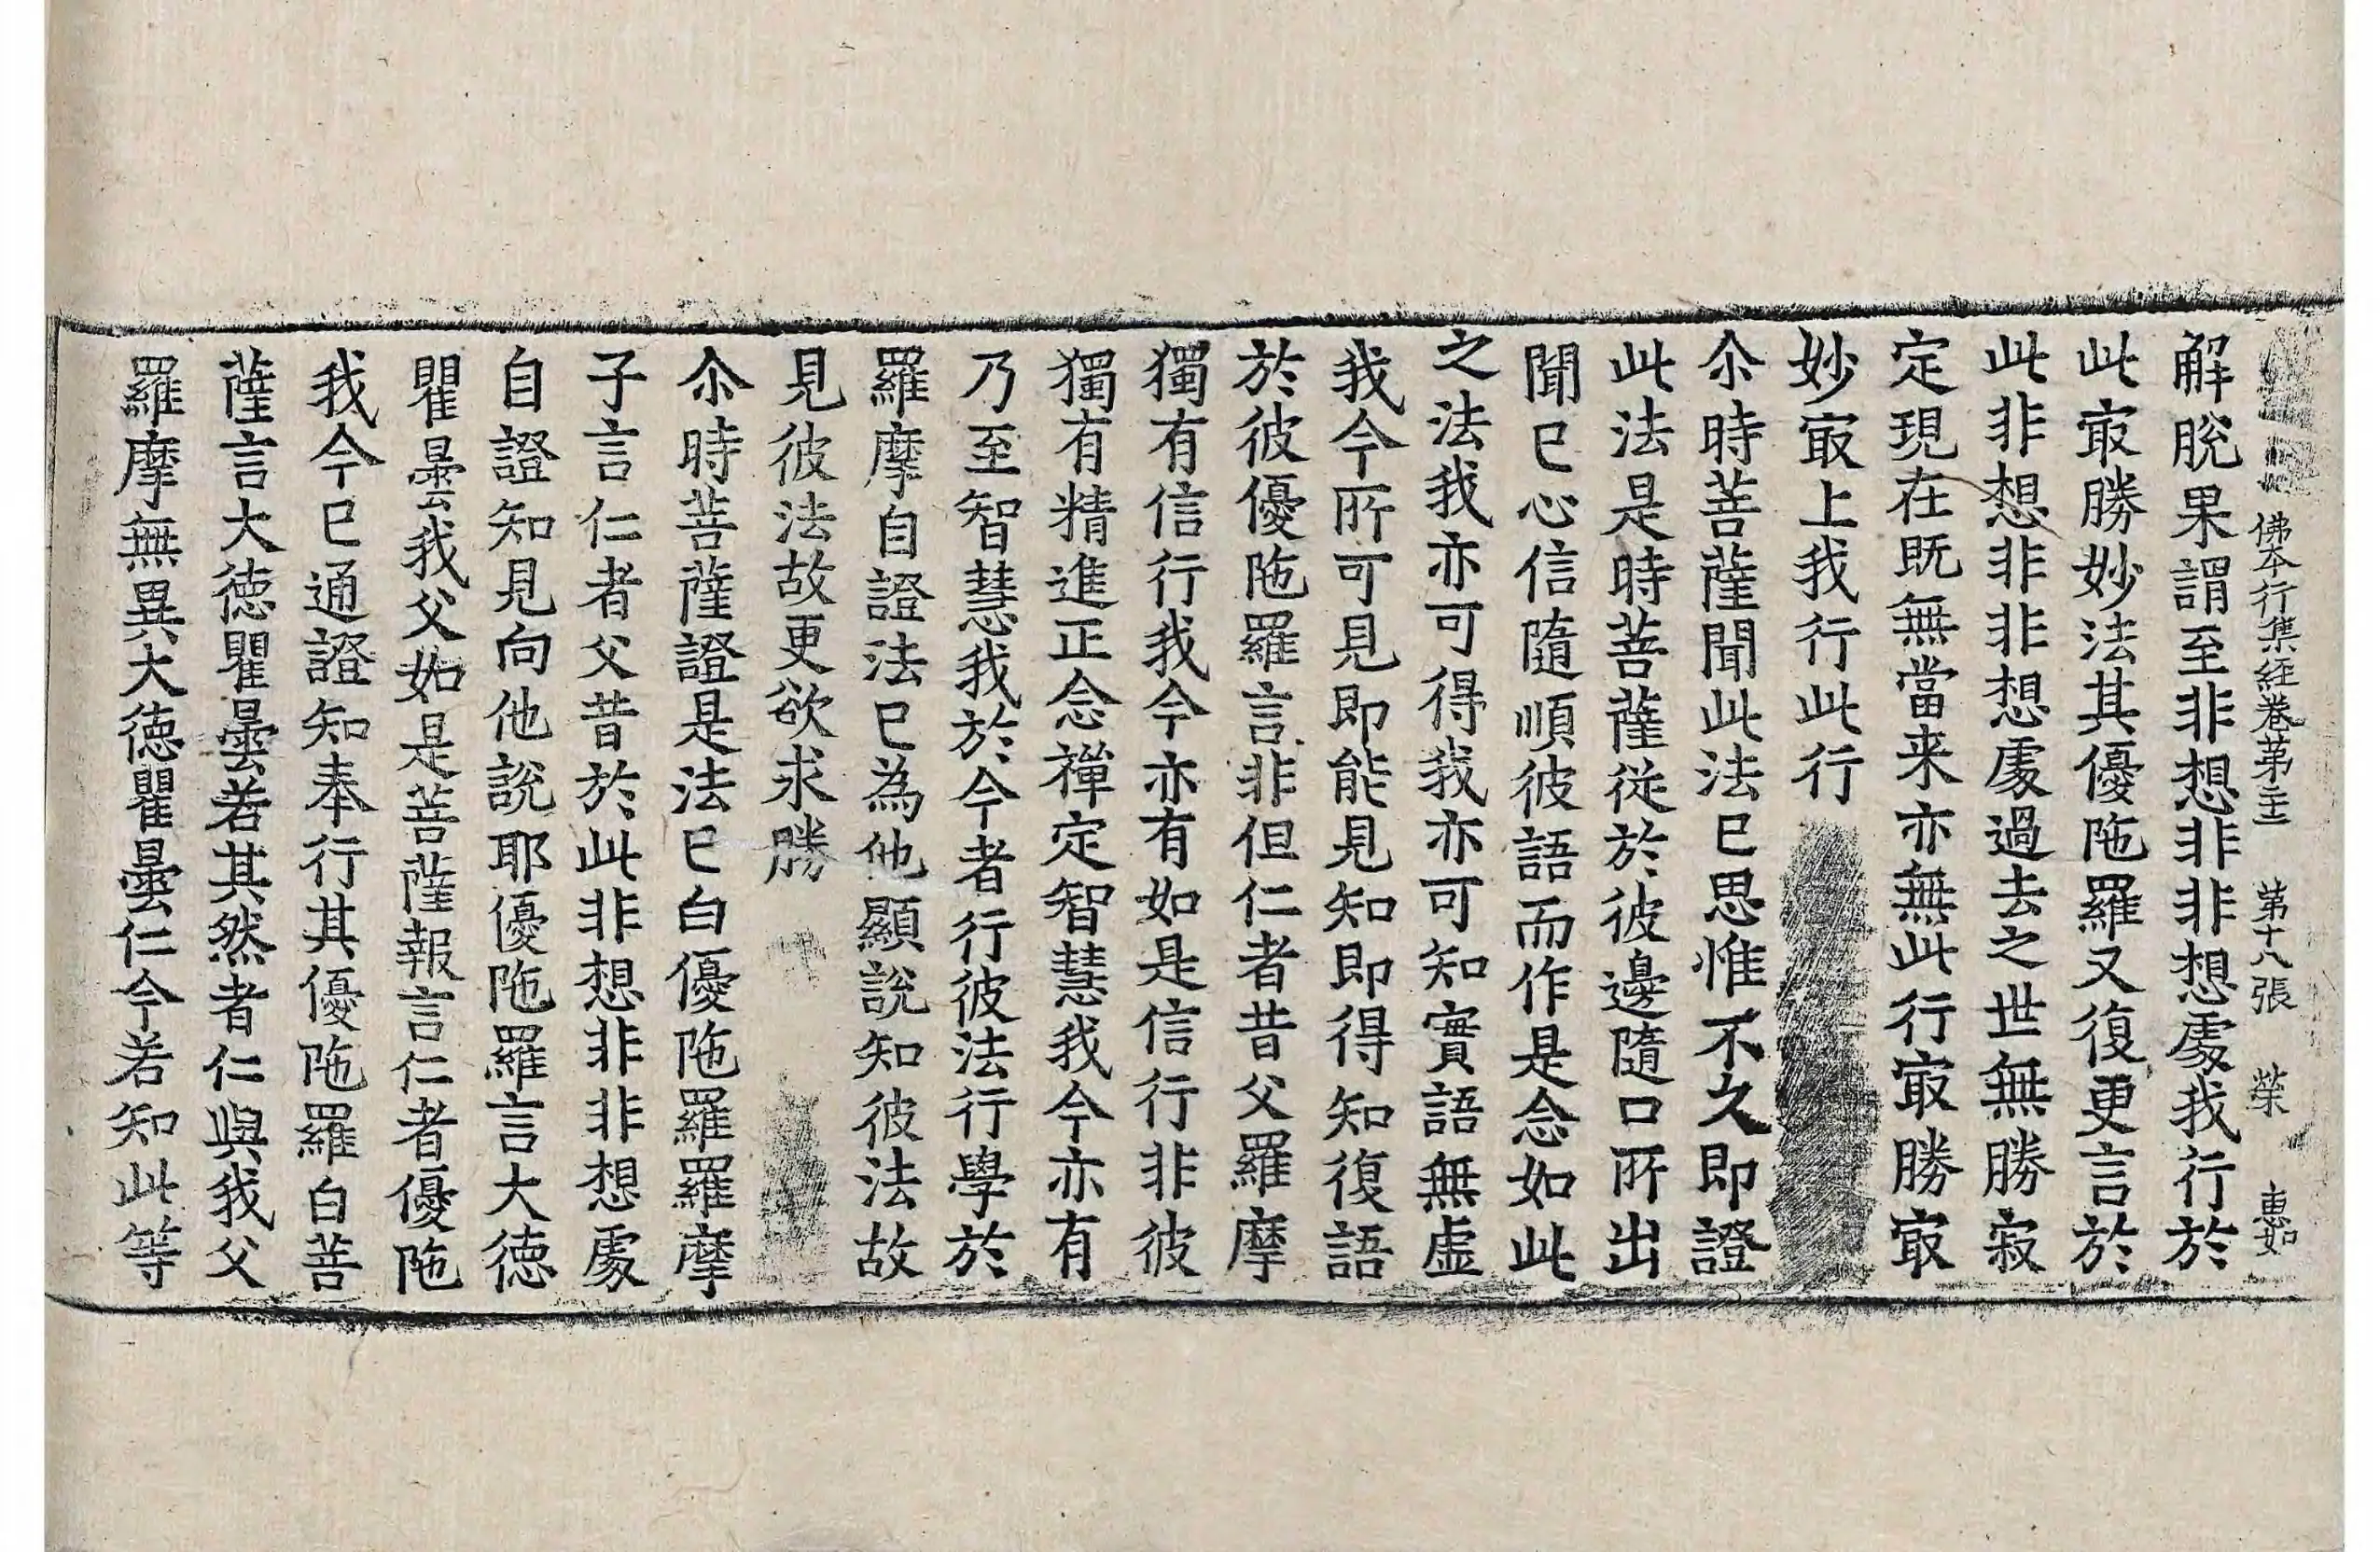 佛本行集經卷第主 第十八張 荣 惠如
解脫果謂至非想非非想處我行於
此㝡勝妙法其優陁羅又復更言於
此非想非非想處過去之世無勝寂
定現在既無當来亦無此行㝡勝㝡
妙㝡上我行此行
尒時菩薩聞此法已思惟不久即證
此法是時菩薩從於彼邊隨口所出
聞已心信隨順彼語而作是念如此
之法我亦可得我亦可知實語無虛
我今所可見即能見知即得知復語
於彼優陁羅言非但仁者昔父羅摩
獨有信行我今亦有如是信行非彼
獨有精進正念禪定智慧我今亦有
乃至智慧我於今者行彼法行學於
羅摩自證法已為他顯說知彼法故
見彼法故更欲求勝
尒時菩薩證是法已白優陁羅羅摩
子言仁者父昔於此非想非非想處
自證知見向他說耶優陁羅言大德
瞿曇我父如是菩薩報言仁者優陁
我今已通證知奉行其優陁羅白菩
薩言大德瞿曇若其然者仁與我父
羅摩無異大德瞿曇仁今若知此等